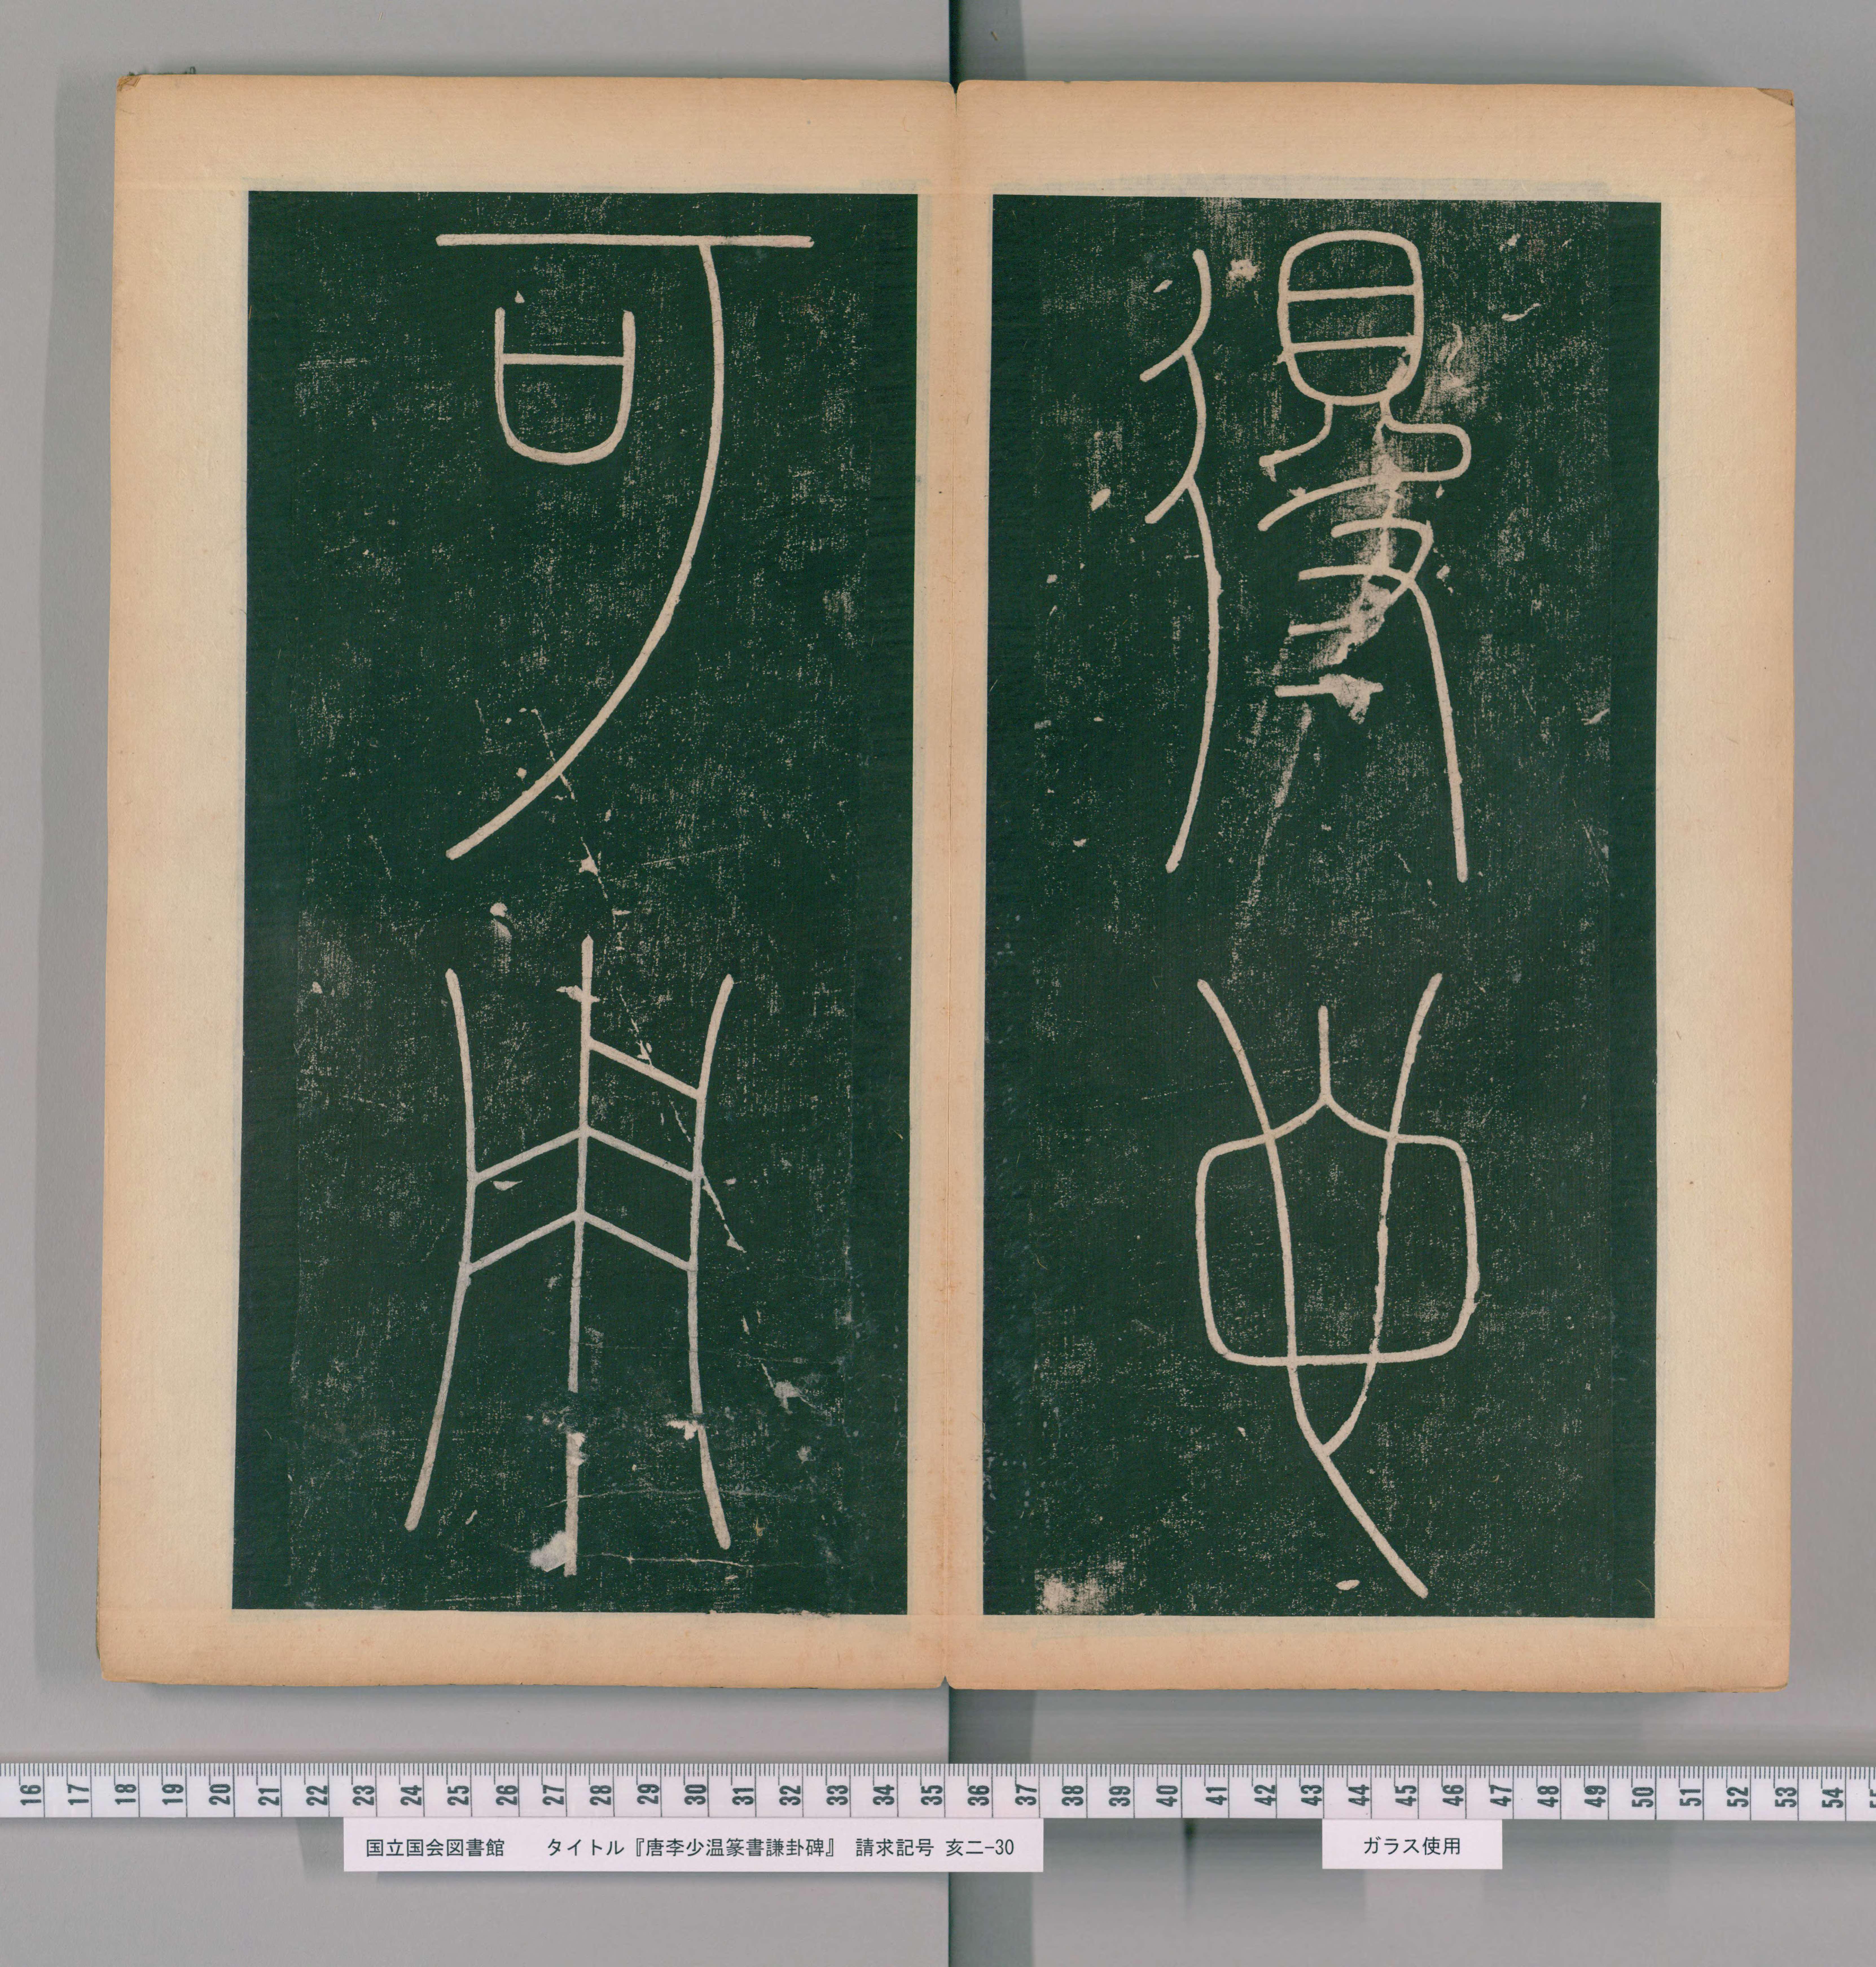 得也
可用
16 17 18 19 20 21 22 23 24 25 26 27 28 29 30 31 32 33 34 35 36 37 38 39 40 41 42 43 44 45 46 47 48 49 50 51 52 53 54
国立国会図書館　　タイトル『唐李少温篆書謙卦碑』　請求記号 亥二-30
ガラス使用